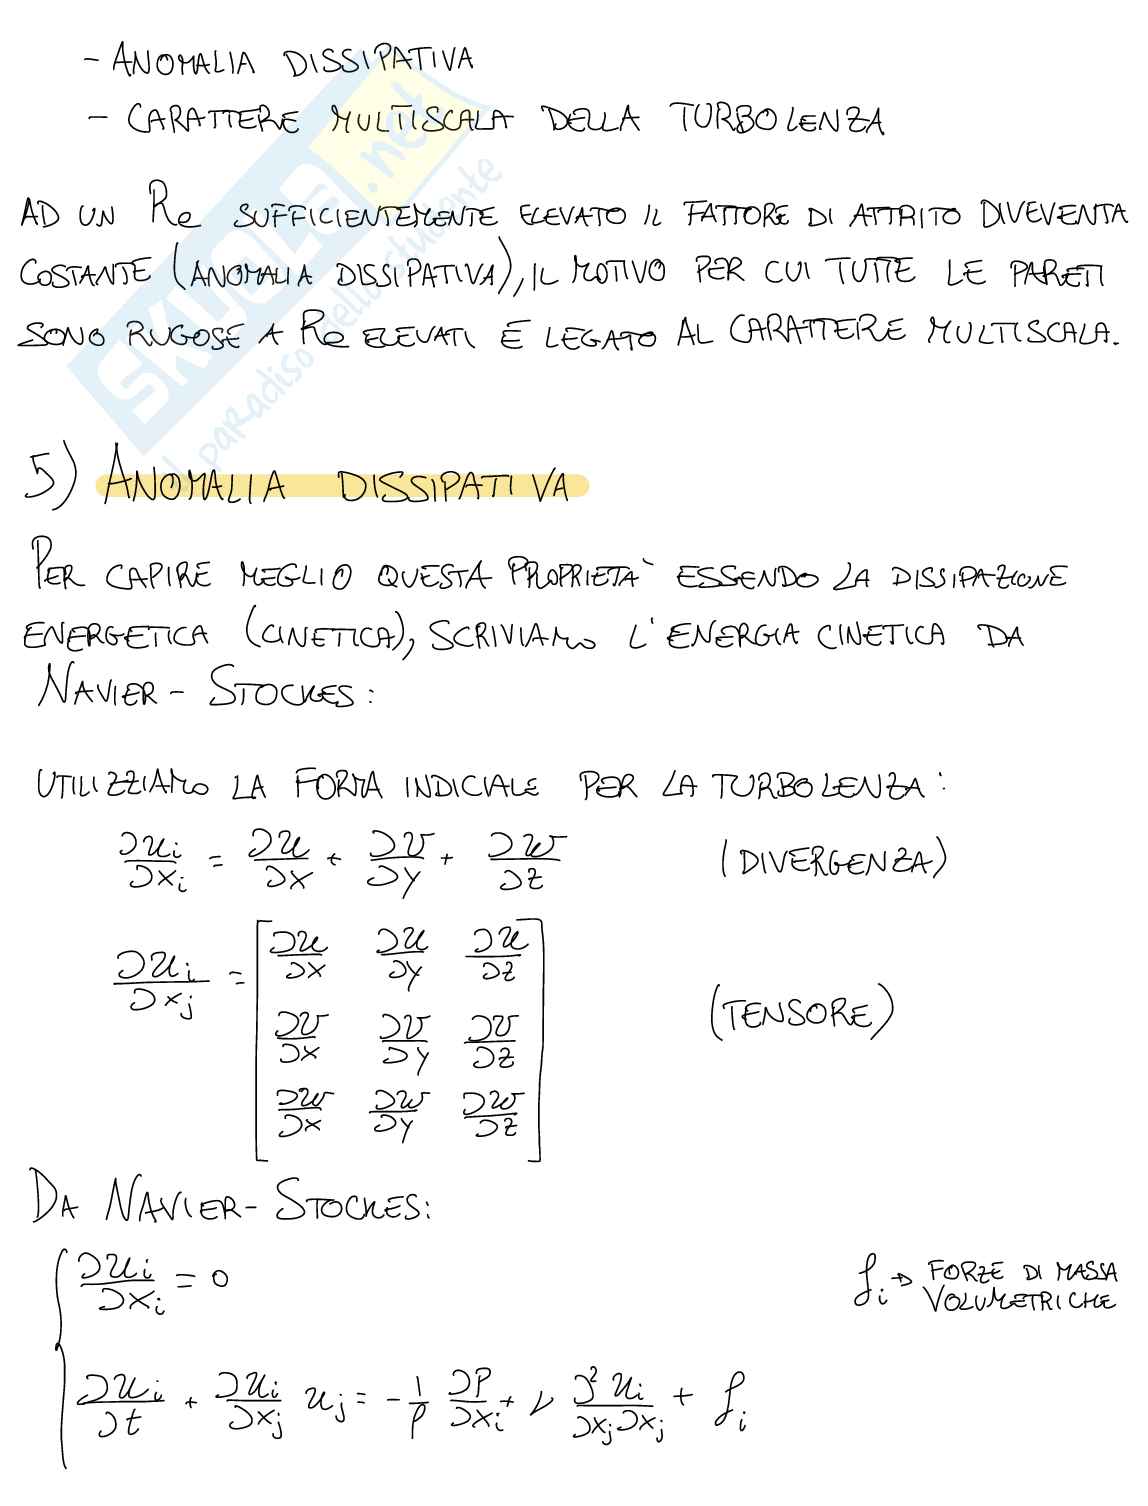 - ANOMALIA DISSIPATIVA
- CARATTERE MULTISCALA DELLA TURBOLENZA
AD UN Re SUFFICIENTEMENTE ELEVATO IL FATTORE DI ATTRITO DIVEVENTA
COSTANTE (ANOMALIA DISSIPATIVA), IL MOTIVO PER CUI TUTTE LE PARETI
SONO RUGOSE A Re ELEVATI È LEGATO AL CARATTERE MULTISCALA.
SKUOLA.net
il paradiso dello studente
5) ANOMALIA DISSIPATIVA
PER CAPIRE MEGLIO QUESTA PROPRIETA` ESSENDO LA DISSIPAZIONE
ENERGETICA (CINETICA), SCRIVIAMO L'ENERGIA CINETICA DA
NAVIER - STOCKES:
UTILIZZIAMO LA FORMA INDICIALE PER LA TURBOLENZA:
∂ui/∂xi = ∂u/∂x + ∂v/∂y + ∂w/∂z (DIVERGENZA)
∂ui/∂xj = [∂u/∂x ∂u/∂y ∂u/∂z
∂v/∂x ∂v/∂y ∂v/∂z
∂w/∂x ∂w/∂y ∂w/∂z] (TENSORE)
DA NAVIER - STOCKES:
∂ui/∂xi = 0
fi → FORZE DI MASSA
VOLUMETRICHE
∂ui/∂t + ∂ui/∂xj uj = - 1/ρ ∂P/∂xi + ν ∂²ui/∂xj∂xj + fi